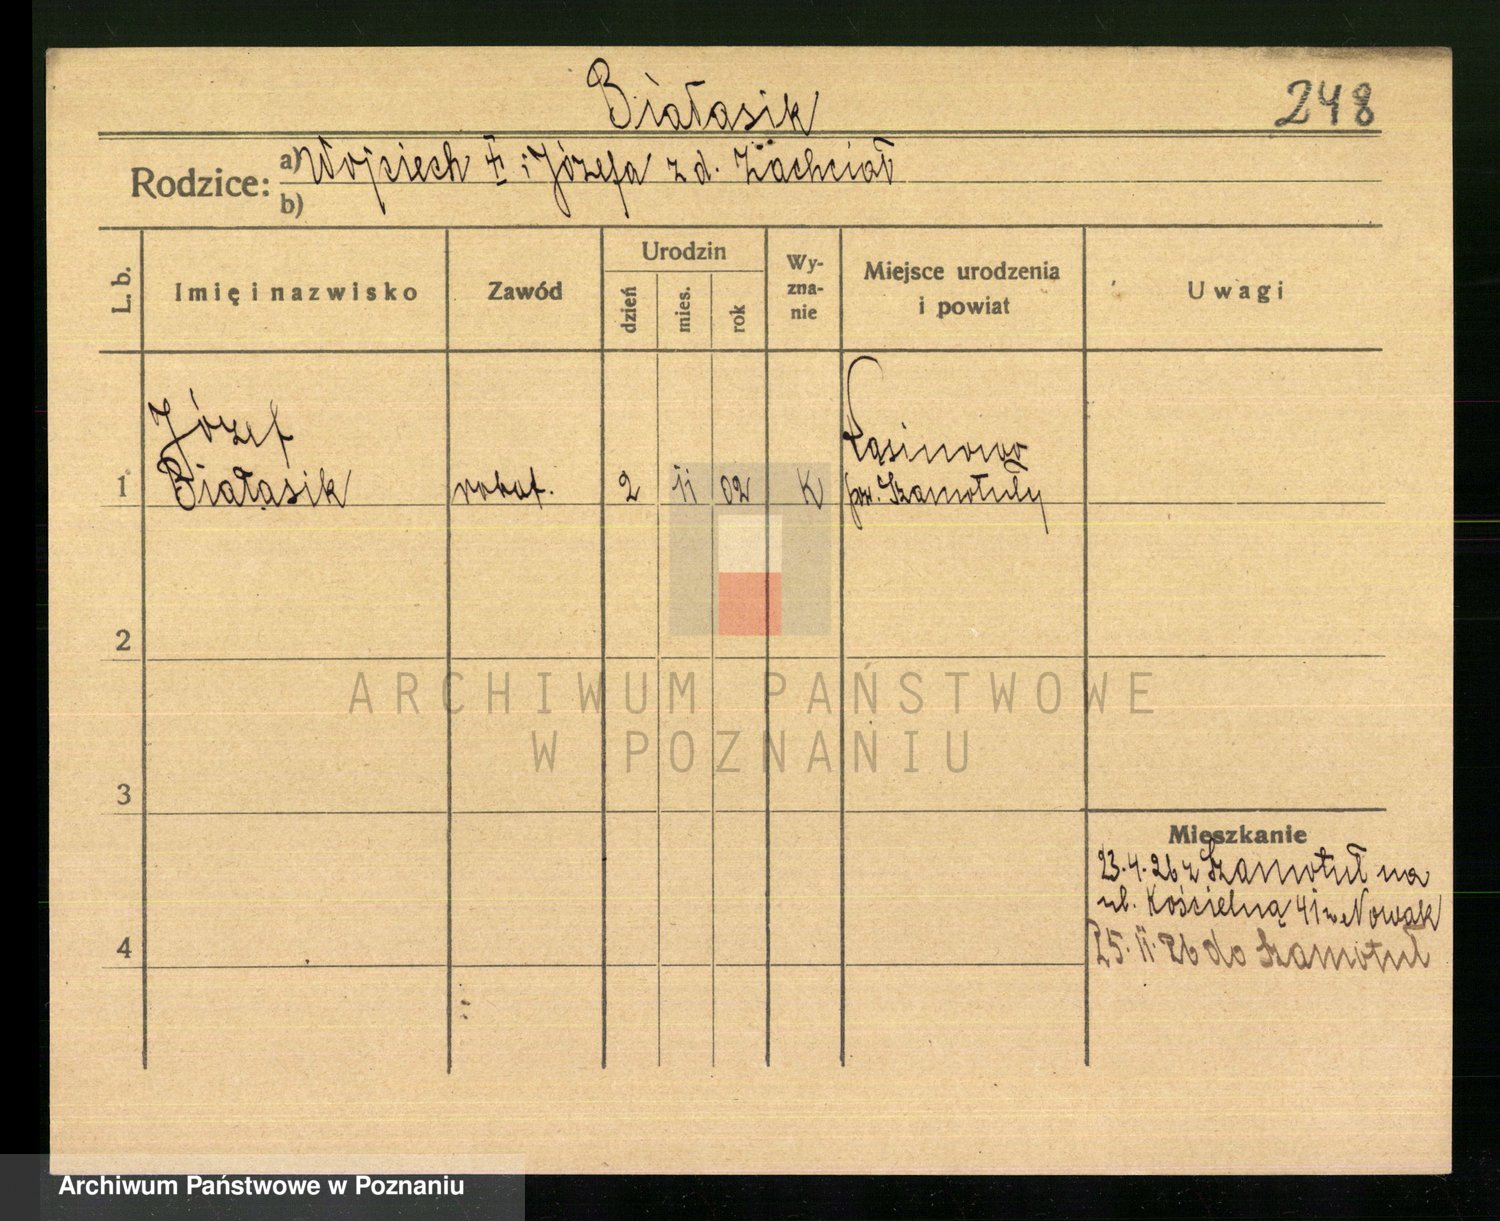 Białasik
248
Rodzice: a) Wojciech † i Józefa z d. Żachciał
b)
L. b. Imię i nazwisko Zawód Urodzin dzień mies. rok Wy-zna-nie Miejsce urodzenia i powiat Uwagi
Józef Łąsinowo
1 Białasik robot. 2 11 02 K pow. Szamotuły
2
ARCHIWUM PAŃSTWOWE
W POZNANIU
3
Mieszkanie
23.4.26 z Szamotuł na
ul. Kościelną 41 Nowak
4 25.11.26 do Szamotuł
Archiwum Państwowe w Poznaniu